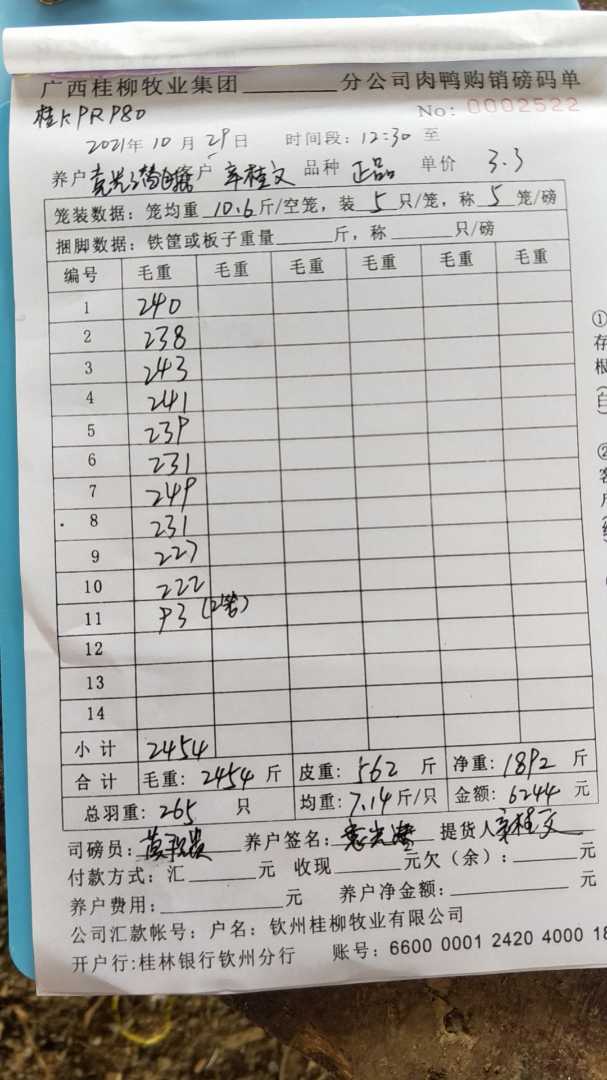 广西桂柳牧业集团________分公司肉鸭购销磅码单
桂KPRP80
No: 0002522
2021年 10 月 29 日 时间段: 12:30 至
养户 客户 辛桂文 品种 正品 单价 3.3
笼装数据: 笼均重 10.6 斤/空笼, 装 5 只/笼, 称 5 笼/磅
捆脚数据: 铁筐或板子重量______斤, 称______只/磅
编号 毛重 毛重 毛重 毛重 毛重 毛重
1 240
2 238
3 243
4 241
5 239
6 231
7 249
8 231
9 227
10 222
11 93 (2笼)
12
13
14
小计 2454
合计 毛重: 2454 斤 皮重: 562 斤 净重: 1892 斤
总羽重: 265 只 均重: 7.14 斤/只 金额: 6244 元
司磅员: 养户签名: 提货人 辛桂文
付款方式: 汇______元 收现______元欠(余): ______元
养户费用: ______元 养户净金额: ______元
公司汇款帐号: 户名: 钦州桂柳牧业有限公司
开户行:桂林银行钦州分行 账号: 6600 0001 2420 4000 18
①
存
根
(白)
②
客